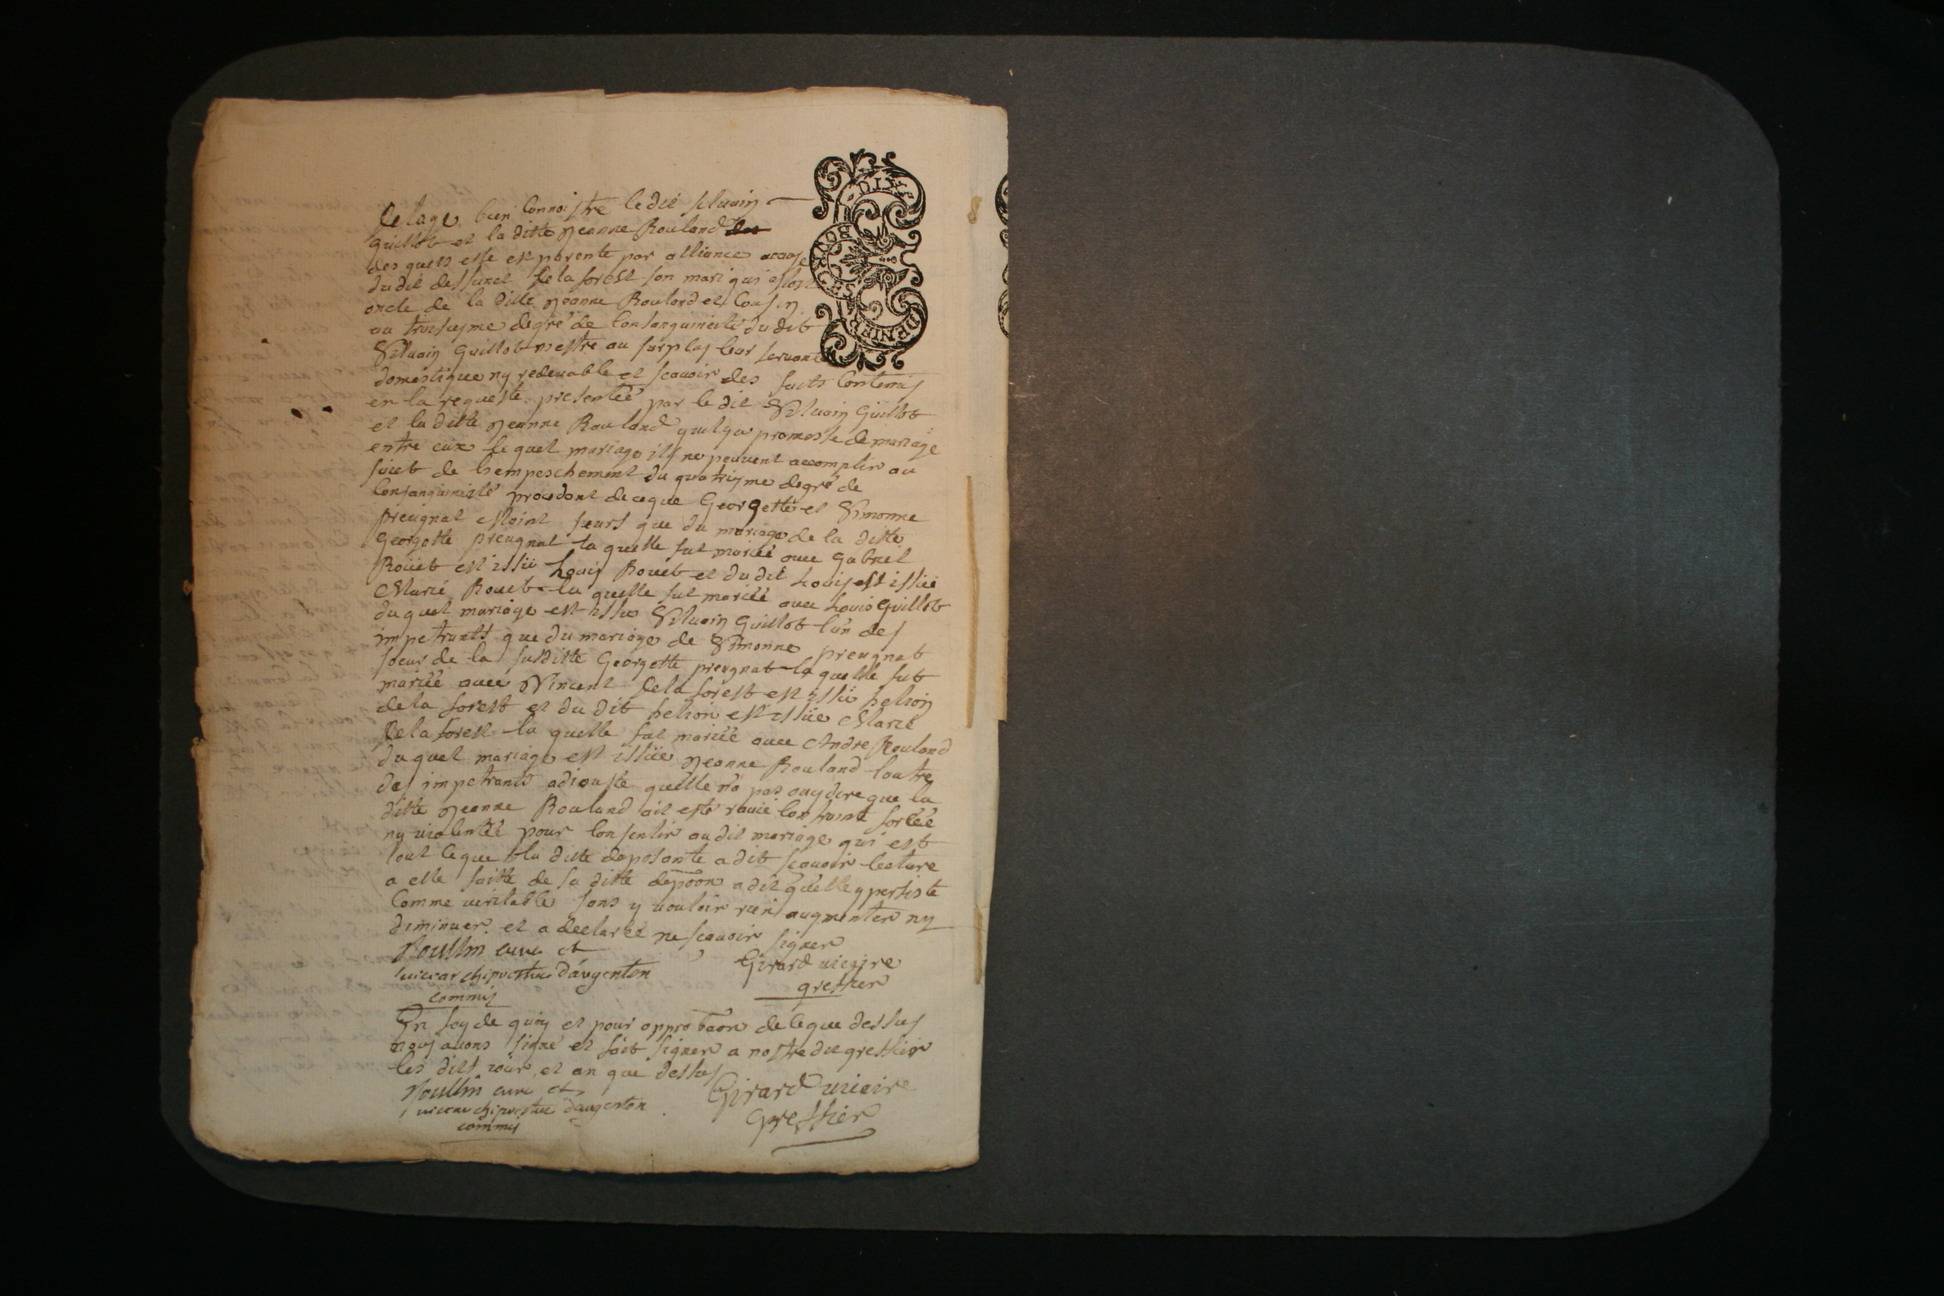 de lage bien connoistre le dit silvain
guillot et la ditte jeanne Rouland
des quels esse est parente par alliance acause
du dit deffunct de la forest son mari qui estoit
oncle de la ditte jeanne Rouland et cousin
au troisiesme degré de consanguinité du dit
Silvain guillot nestre au surplus leur servante
domestique ny redevable et scavoir des faits contenus
en la requeste presentée par le dit Silvain guillot
et la ditte jeanne Rouland quil y a promesse de mariage
entre eux le quel mariage ils ne peuvent accomplir au
suiet de lempeschement du quatriyme degré de
consanguinité procedant de ce que Georgette et Simonne
preugnat estoint seurs que du mariage de la ditte
georgette preugnat la quelle fut mariée avec gabriel
Roüet est issü Louis Rouet et du dit Louis est issüe
Marie Rouet la quelle fut mariée avec Louis guillot
du quel mariage est issu Silvain guillot l'un des
impetrants que du mariage de Simonne preugnat
soeur de la susditte Georgette preugnat la quelle fut
mariée avec Vincent de la forest est issü helion
de la forest et du dit helion est issüe Marie
de la forest la quelle fut mariée avec Andre Rouland
du quel mariage est issüe jeanne Rouland lautre
des impetrants adiouste quelle na pas ouy dire que la
ditte jeanne Rouland ait esté ravie contrainte forcée
ny violentée pour consentir au dit mariage qui est
tout ce que la ditte deposante a dit scavoir lecture
a elle faitte de sa ditte depoon a dit qu'elle y persiste
comme veritable sans y vouloir rien augmenter ny
diminuer et a declaré ne scavoir signer
curé et Girard vicaire
vicearchiprestre dargenton greffier
commis
En foy de quoy et pour approbaon de ce que dessus
nous avons signé et fait signer a nostre dit greffier
les dits iour et an que dessus
curé et Girard vicaire
vicearchiprestre dargenton greffier
commis
DENIERS